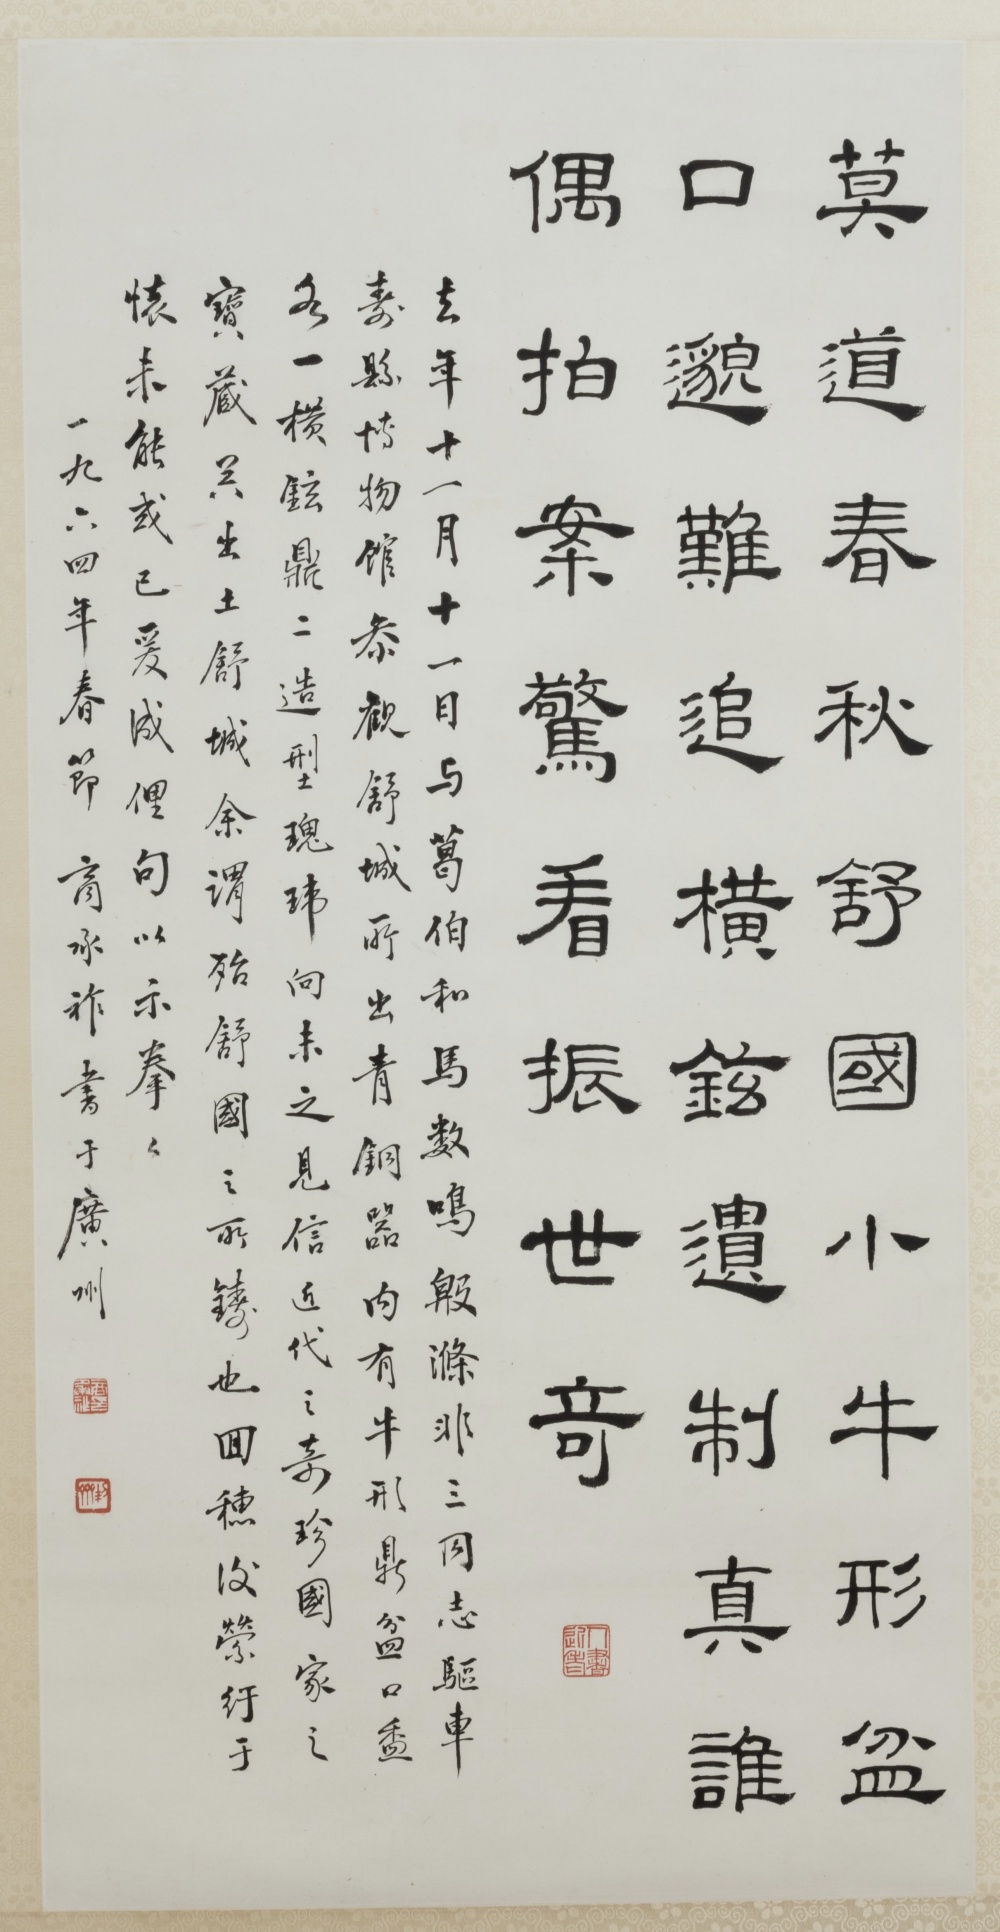 莫道春秋舒國小牛形盆
口邈難追橫鉉遺制真誰
偶拍案驚看振世奇
去年十一月十一日与葛伯和馬数鳴殷滌非三同志驅車
壽縣博物馆参觀舒城所出青銅器内有牛形鼎盆口盉
各一横鉉鼎二造型瑰玮向未之見信近代之奇珍國家之
寶藏器出土舒城余謂殆舒國之所鑄也回穗後縈紆于
懷未能或已爰成俚句以示拳々
一九六四年春節 商承祚書于廣州